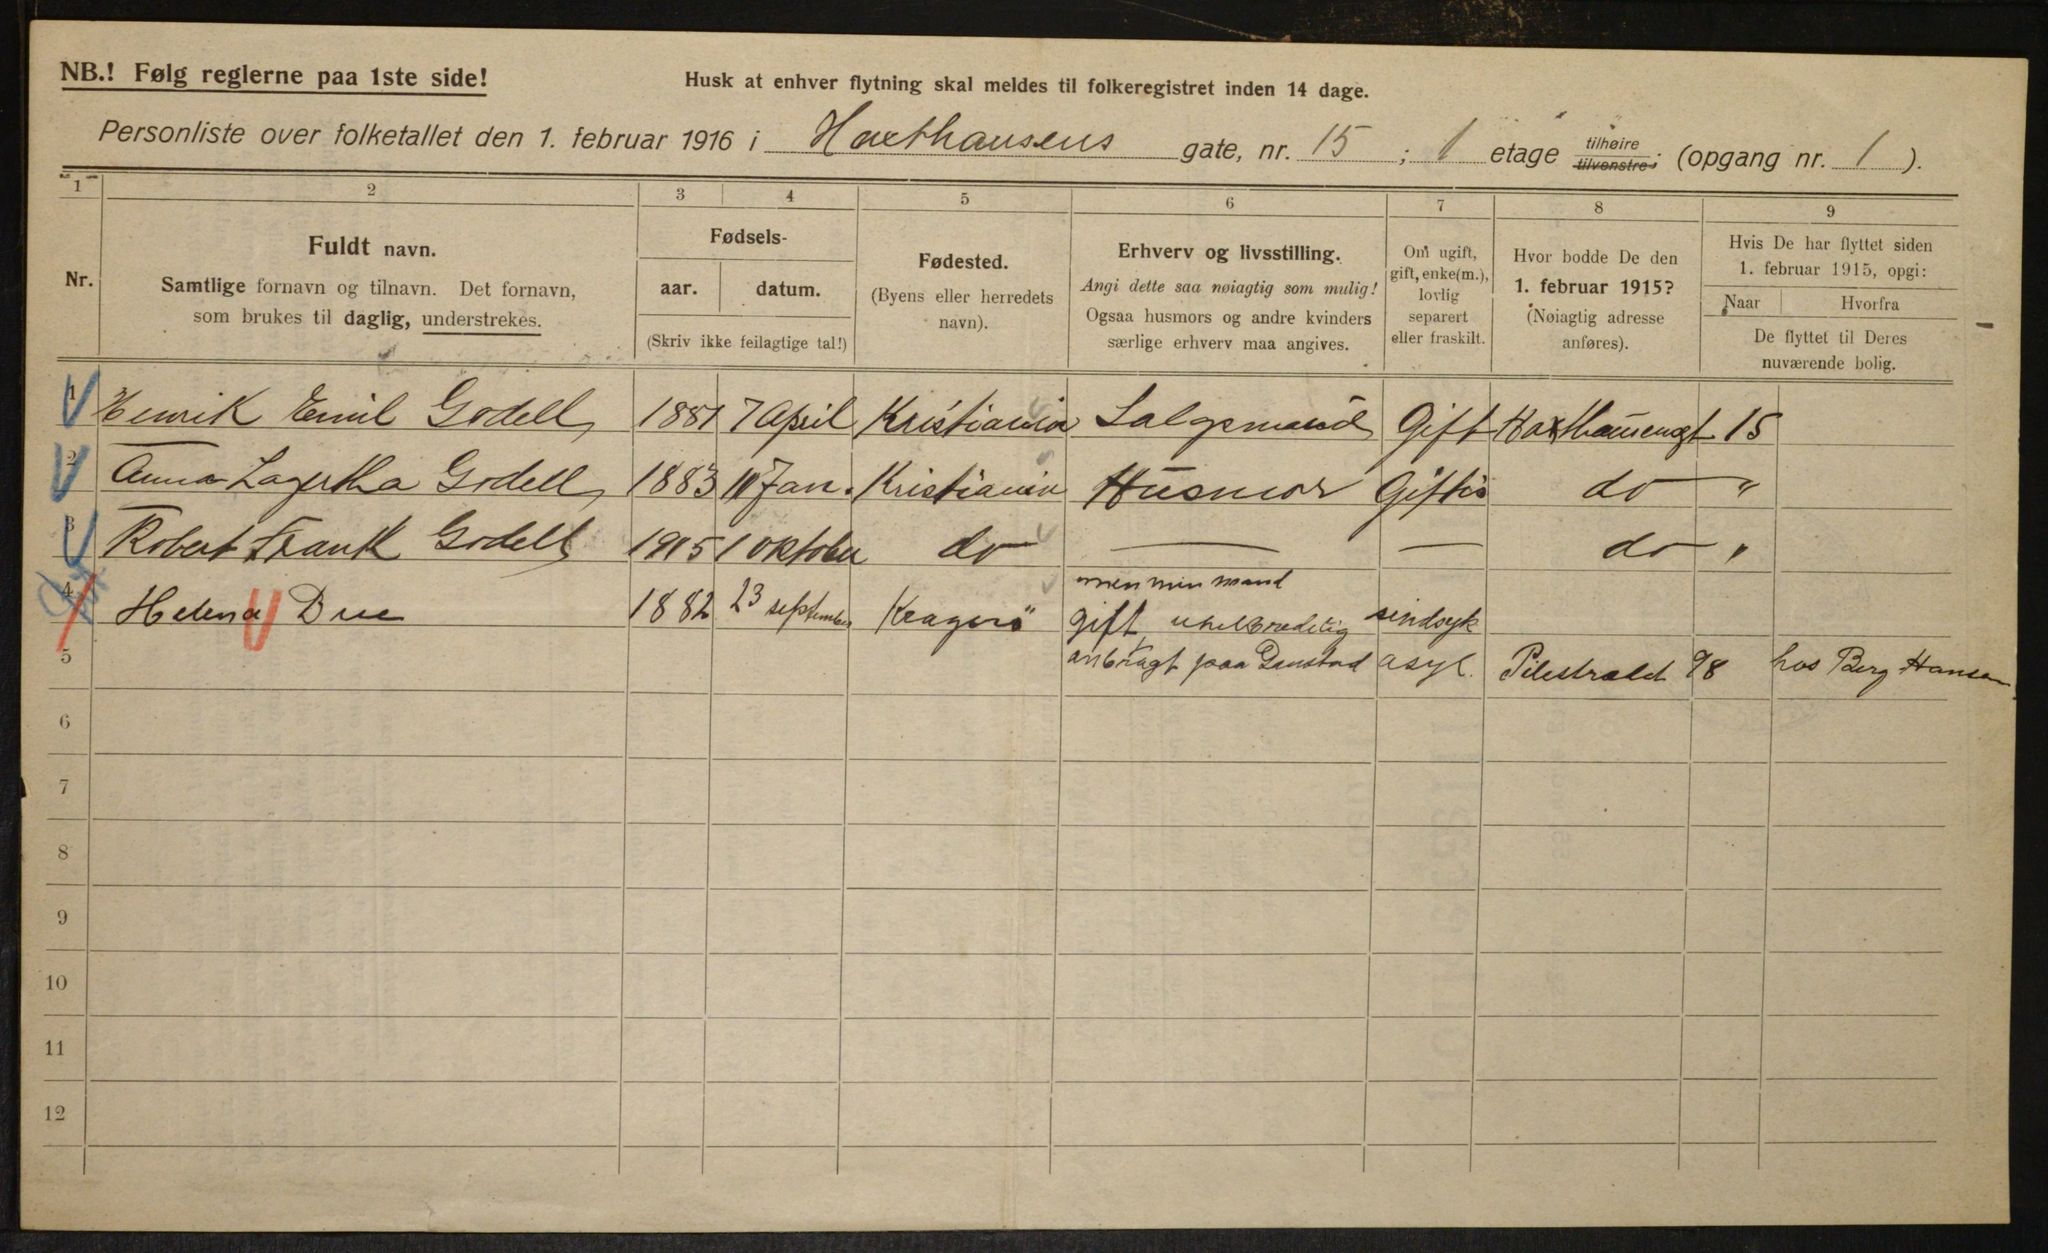 NB.! Følg reglerne paa 1ste side!
Husk at enhver flytning skal meldes til folkeregistret inden 14 dage.
Personliste over folketallet den 1. februar 1916 i Haxthausens gate, nr. 15 ; 1 etage tilhøire tilvenstre; (opgang nr. 1 ).
1 2 3 4 5 6 7 8 9
Nr.
Fuldt navn.
Samtlige fornavn og tilnavn. Det fornavn,
som brukes til daglig, understrekes.
Fødsels-
aar. datum.
(Skriv ikke feilagtige tal!)
Fødested.
(Byens eller herredets
navn).
Erhverv og livsstilling.
Angi dette saa nøiagtig som mulig!
Ogsaa husmors og andre kvinders
særlige erhverv maa angives.
Om ugift,
gift, enke(m.),
lovlig
separert
eller fraskilt.
Hvor bodde De den
1. februar 1915?
(Nøiagtig adresse
anføres).
Hvis De har flyttet siden
1. februar 1915, opgi:
Naar Hvorfra
De flyttet til Deres
nuværende bolig.
1 Henrik Emil Godell 1881 7 April Kristiania Salgsmand Gift Haxthausengt 15
2 Anna Lagertha Godell 1883 Jan. Kristiania Husmor Gift do "
3 Robert Frank Godell 1905 1 Oktober do — — do "
men min mand
4 Helena Due 1882 23 september Kragerö gift, uhelbredelig sindsyk
5 anbragt paa Gaustad asyl. Pilestrædet 98 hos Berg Hansen
6
7
8
9
10
11
12